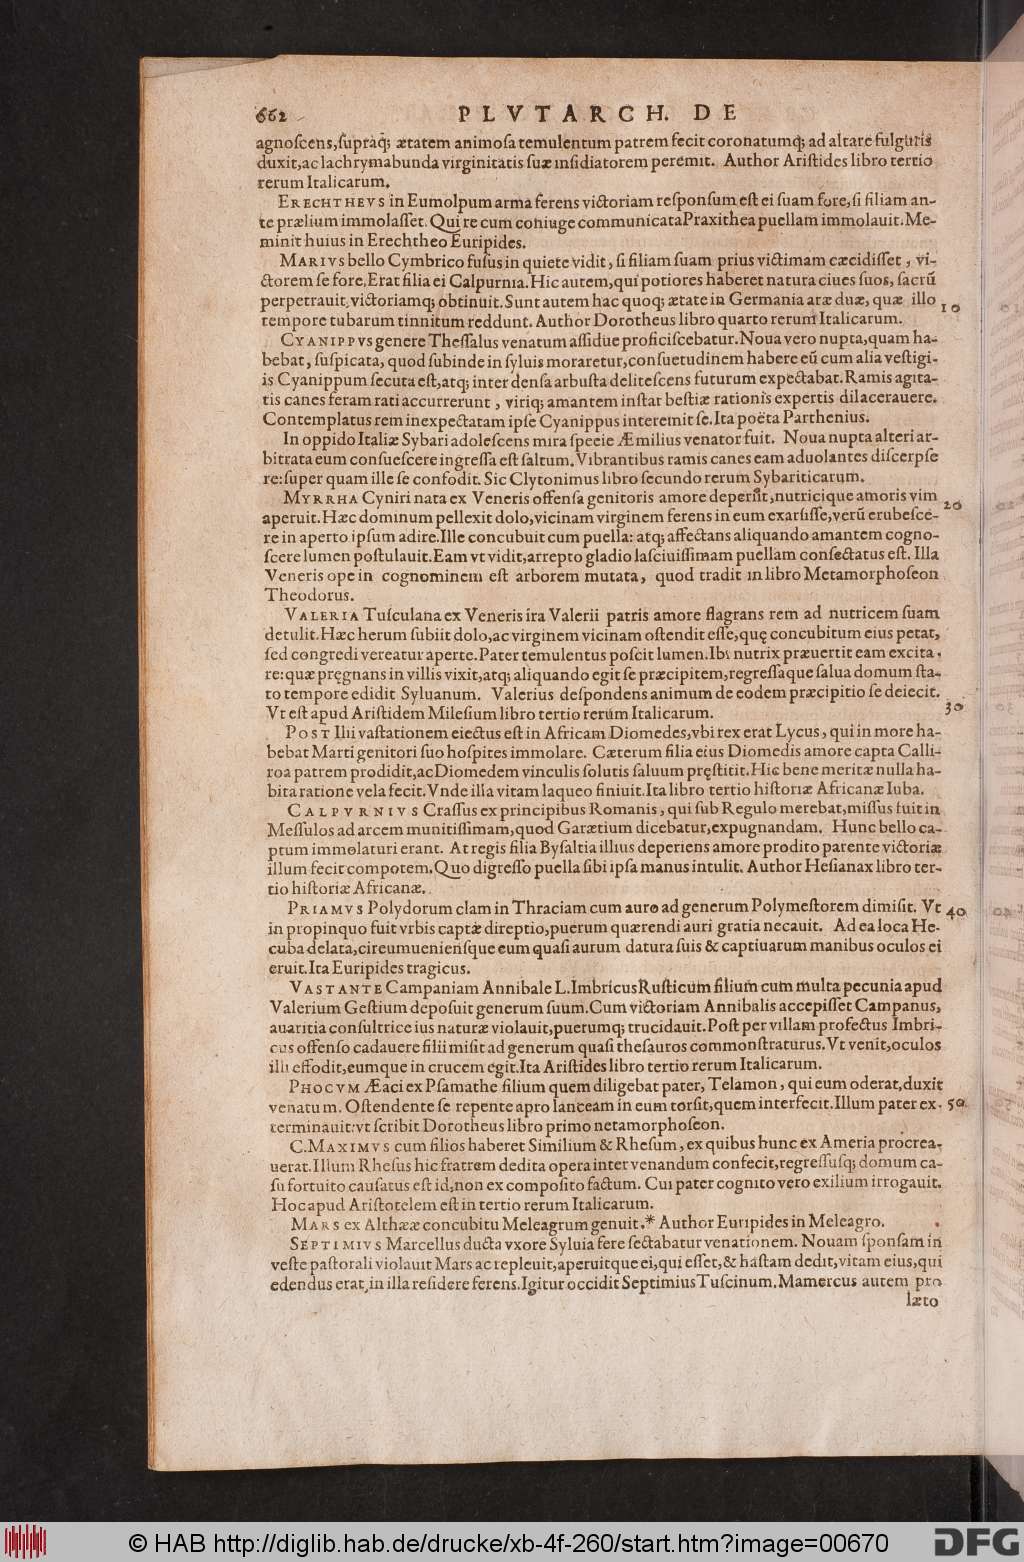 662 PLVTARCH. DE
agnoſcens, ſupraq́; ætatem animoſa temulentum patrem fecit coronatumq́; ad altare fulguris
duxit, ac lachrymabunda virginitatis ſuæ inſidiatorem peremit. Author Ariſtides libro tertio
rerum Italicarum.
ERECHTHEVS in Eumolpum arma ferens victoriam reſponſum eſt ei ſuam fore, ſi filiam an-
te prælium immolaſſet. Qui re cum coniuge communicata Praxithea puellam immolauit. Me-
minit huius in Erechtheo Euripides.
MARIVS bello Cymbrico fuſus in quiete vidit, ſi filiam ſuam prius victimam cæcidiſſet, vi-
ctorem ſe fore. Erat filia ei Calpurnia. Hic autem, qui potiores haberet natura ciues ſuos, ſacrũ
perpetrauit, victoriamq; obtinuit. Sunt autem hac quoq; ætate in Germania aræ duæ, quæ illo 10
tempore tubarum tinnitum reddunt. Author Dorotheus libro quarto rerum Italicarum.
CYANIPPVS genere Theſſalus venatum aſſidue proficiſcebatur. Noua vero nupta, quam ha-
bebat, ſuſpicata, quod ſubinde in ſyluis moraretur, conſuetudinem habere eũ cum alia veſtigi-
is Cyanippum ſecuta eſt, atq; inter denſa arbuſta deliteſcens futurum expectabat. Ramis agita-
tis canes feram rati accurrerunt, viriq; amantem inſtar beſtiæ rationis expertis dilacerauere.
Contemplatus rem inexpectatam ipſe Cyanippus interemit ſe. Ita poëta Parthenius.
In oppido Italiæ Sybari adoleſcens mira ſpecie Æmilius venator fuit. Noua nupta alteri ar-
bitrata eum conſueſcere ingreſſa eſt ſaltum. Vibrantibus ramis canes eam aduolantes diſcerpſe
re: ſuper quam ille ſe confodit. Sic Clytonimus libro ſecundo rerum Sybariticarum.
MYRRHA Cyniri nata ex Veneris offenſa genitoris amore deperiit, nutricique amoris vim 20
aperuit. Hæc dominum pellexit dolo, vicinam virginem ferens in eum exarſiſſe, verũ erubeſce-
re in aperto ipſum adire. Ille concubuit cum puella: atq; affectans aliquando amantem cogno-
ſcere lumen poſtulauit. Eam vt vidit, arrepto gladio laſciuiſſimam puellam conſectatus eſt. Illa
Veneris ope in cognominem eſt arborem mutata, quod tradit in libro Metamorphoſeon
Theodorus.
VALERIA Tuſculana ex Veneris ira Valerii patris amore flagrans rem ad nutricem ſuam
detulit. Hæc herum ſubiit dolo, ac virginem vicinam oſtendit eſſe, quę concubitum eius petat,
ſed congredi vereatur aperte. Pater temulentus poſcit lumen. Ibi nutrix præuertit eam excita.
re: quæ pręgnans in villis vixit, atq; aliquando egit ſe præcipitem, regreſſaque ſalua domum ſta-
to tempore edidit Syluanum. Valerius deſpondens animum de eodem præcipitio ſe deiecit. 30
Vt eſt apud Ariſtidem Mileſium libro tertio rerum Italicarum.
POST Ilii vaſtationem eiectus eſt in Africam Diomedes, vbi rex erat Lycus, qui in more ha-
bebat Marti genitori ſuo hoſpites immolare. Cæterum filia eius Diomedis amore capta Calli-
roa patrem prodidit, ac Diomedem vinculis ſolutis ſaluum pręſtitit. Hic bene meritæ nulla ha-
bita ratione vela fecit. Vnde illa vitam laqueo finiuit. Ita libro tertio hiſtoriæ Africanæ Iuba.
CALPVRNIVS Craſſus ex principibus Romanis, qui ſub Regulo merebat, miſſus fuit in
Meſſulos ad arcem munitiſſimam, quod Garætium dicebatur, expugnandam. Hunc bello ca-
ptum immolaturi erant. At regis filia Byſaltia illius deperiens amore prodito parente victoriæ
illum fecit compotem. Quo digreſſo puella ſibi ipſa manus intulit. Author Heſianax libro ter-
tio hiſtoriæ Africanæ.
PRIAMVS Polydorum clam in Thraciam cum auro ad generum Polymeſtorem dimiſit. Vt 40
in propinquo fuit vrbis captæ direptio, puerum quærendi auri gratia necauit. Ad ea loca He-
cuba delata, circumuenienſque eum quaſi aurum datura ſuis & captiuarum manibus oculos ei
eruit. Ita Euripides tragicus.
VASTANTE Campaniam Annibale L. Imbricus Ruſticum filium cum multa pecunia apud
Valerium Geſtium depoſuit generum ſuum. Cum victoriam Annibalis accepiſſet Campanus,
auaritia conſultrice ius naturæ violauit, puerumq; trucidauit. Poſt per villam profectus Imbri-
cus offenſo cadauere filii miſit ad generum quaſi theſauros commonſtraturus. Vt venit, oculos
illi effodit, eumque in crucem egit. Ita Ariſtides libro tertio rerum Italicarum.
PHOCVM Æaci ex Pſamathe filium quem diligebat pater, Telamon, qui eum oderat, duxit
venatum. Oſtendente ſe repente apro lanceam in eum torſit, quem interfecit. Illum pater ex. 50
terminauit: vt ſcribit Dorotheus libro primo netamorphoſeon.
C. MAXIMVS cum filios haberet Similium & Rheſum, ex quibus hunc ex Ameria procrea-
uerat. Illum Rheſus hic fratrem dedita opera inter venandum confecit, regreſſuſq; domum ca-
ſu fortuito cauſatus eſt id, non ex compoſito factum. Cui pater cognito vero exilium irrogauit.
Hoc apud Ariſtotelem eſt in tertio rerum Italicarum.
MARS ex Althææ concubitu Meleagrum genuit.* Author Euripides in Meleagro.
SEPTIMIVS Marcellus ducta vxore Syluia fere ſectabatur venationem. Nouam ſponſam in
veſte paſtorali violauit Mars ac repleuit, aperuitque ei, qui eſſet, & haſtam dedit, vitam eius, qui
edendus erat, in illa reſidere ferens. Igitur occidit Septimius Tuſcinum. Mamercus autem pro
læto
© HAB http://diglib.hab.de/drucke/xb-4f-260/start.htm?image=00670
DFG